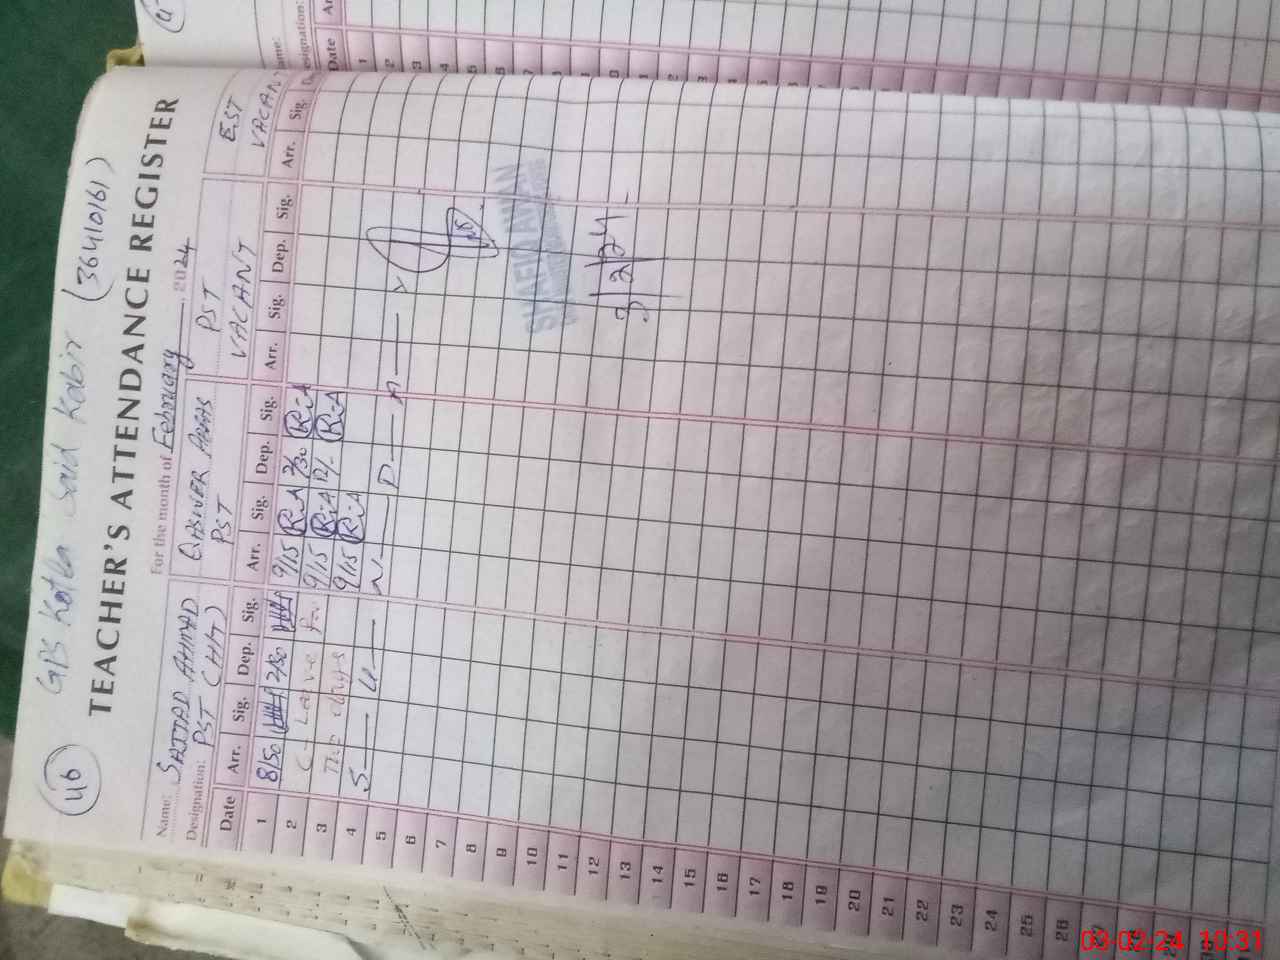 46
GPS Kotla Said Kabir (36410161)
TEACHER'S ATTENDANCE REGISTER
For the month of February, 2024
Name: SAJJAD AHMAD QAISWER ABBAS PST EST
Designation: PST (HT) PST VACANT VACANT
Date Arr. Sig. Dep. Sig. Arr. Sig. Dep. Sig. Arr. Sig. Dep. Sig. Arr. Sig.
1 8/50 2/30 9/15 RiA 2/30 RiA
2 C - Leave for 9/15 RiA 12/- RiA
3 Two days 9/15 RiA
4 S — U — N — D — A — Y
5
6
7
8
9
10
11
12
13
14
15
16
17
18
19
20
21
22
23
24
25
26
SHAFIQ AWAN
3/2/24
Name:
Designation:
Date
03-02-24 10:31